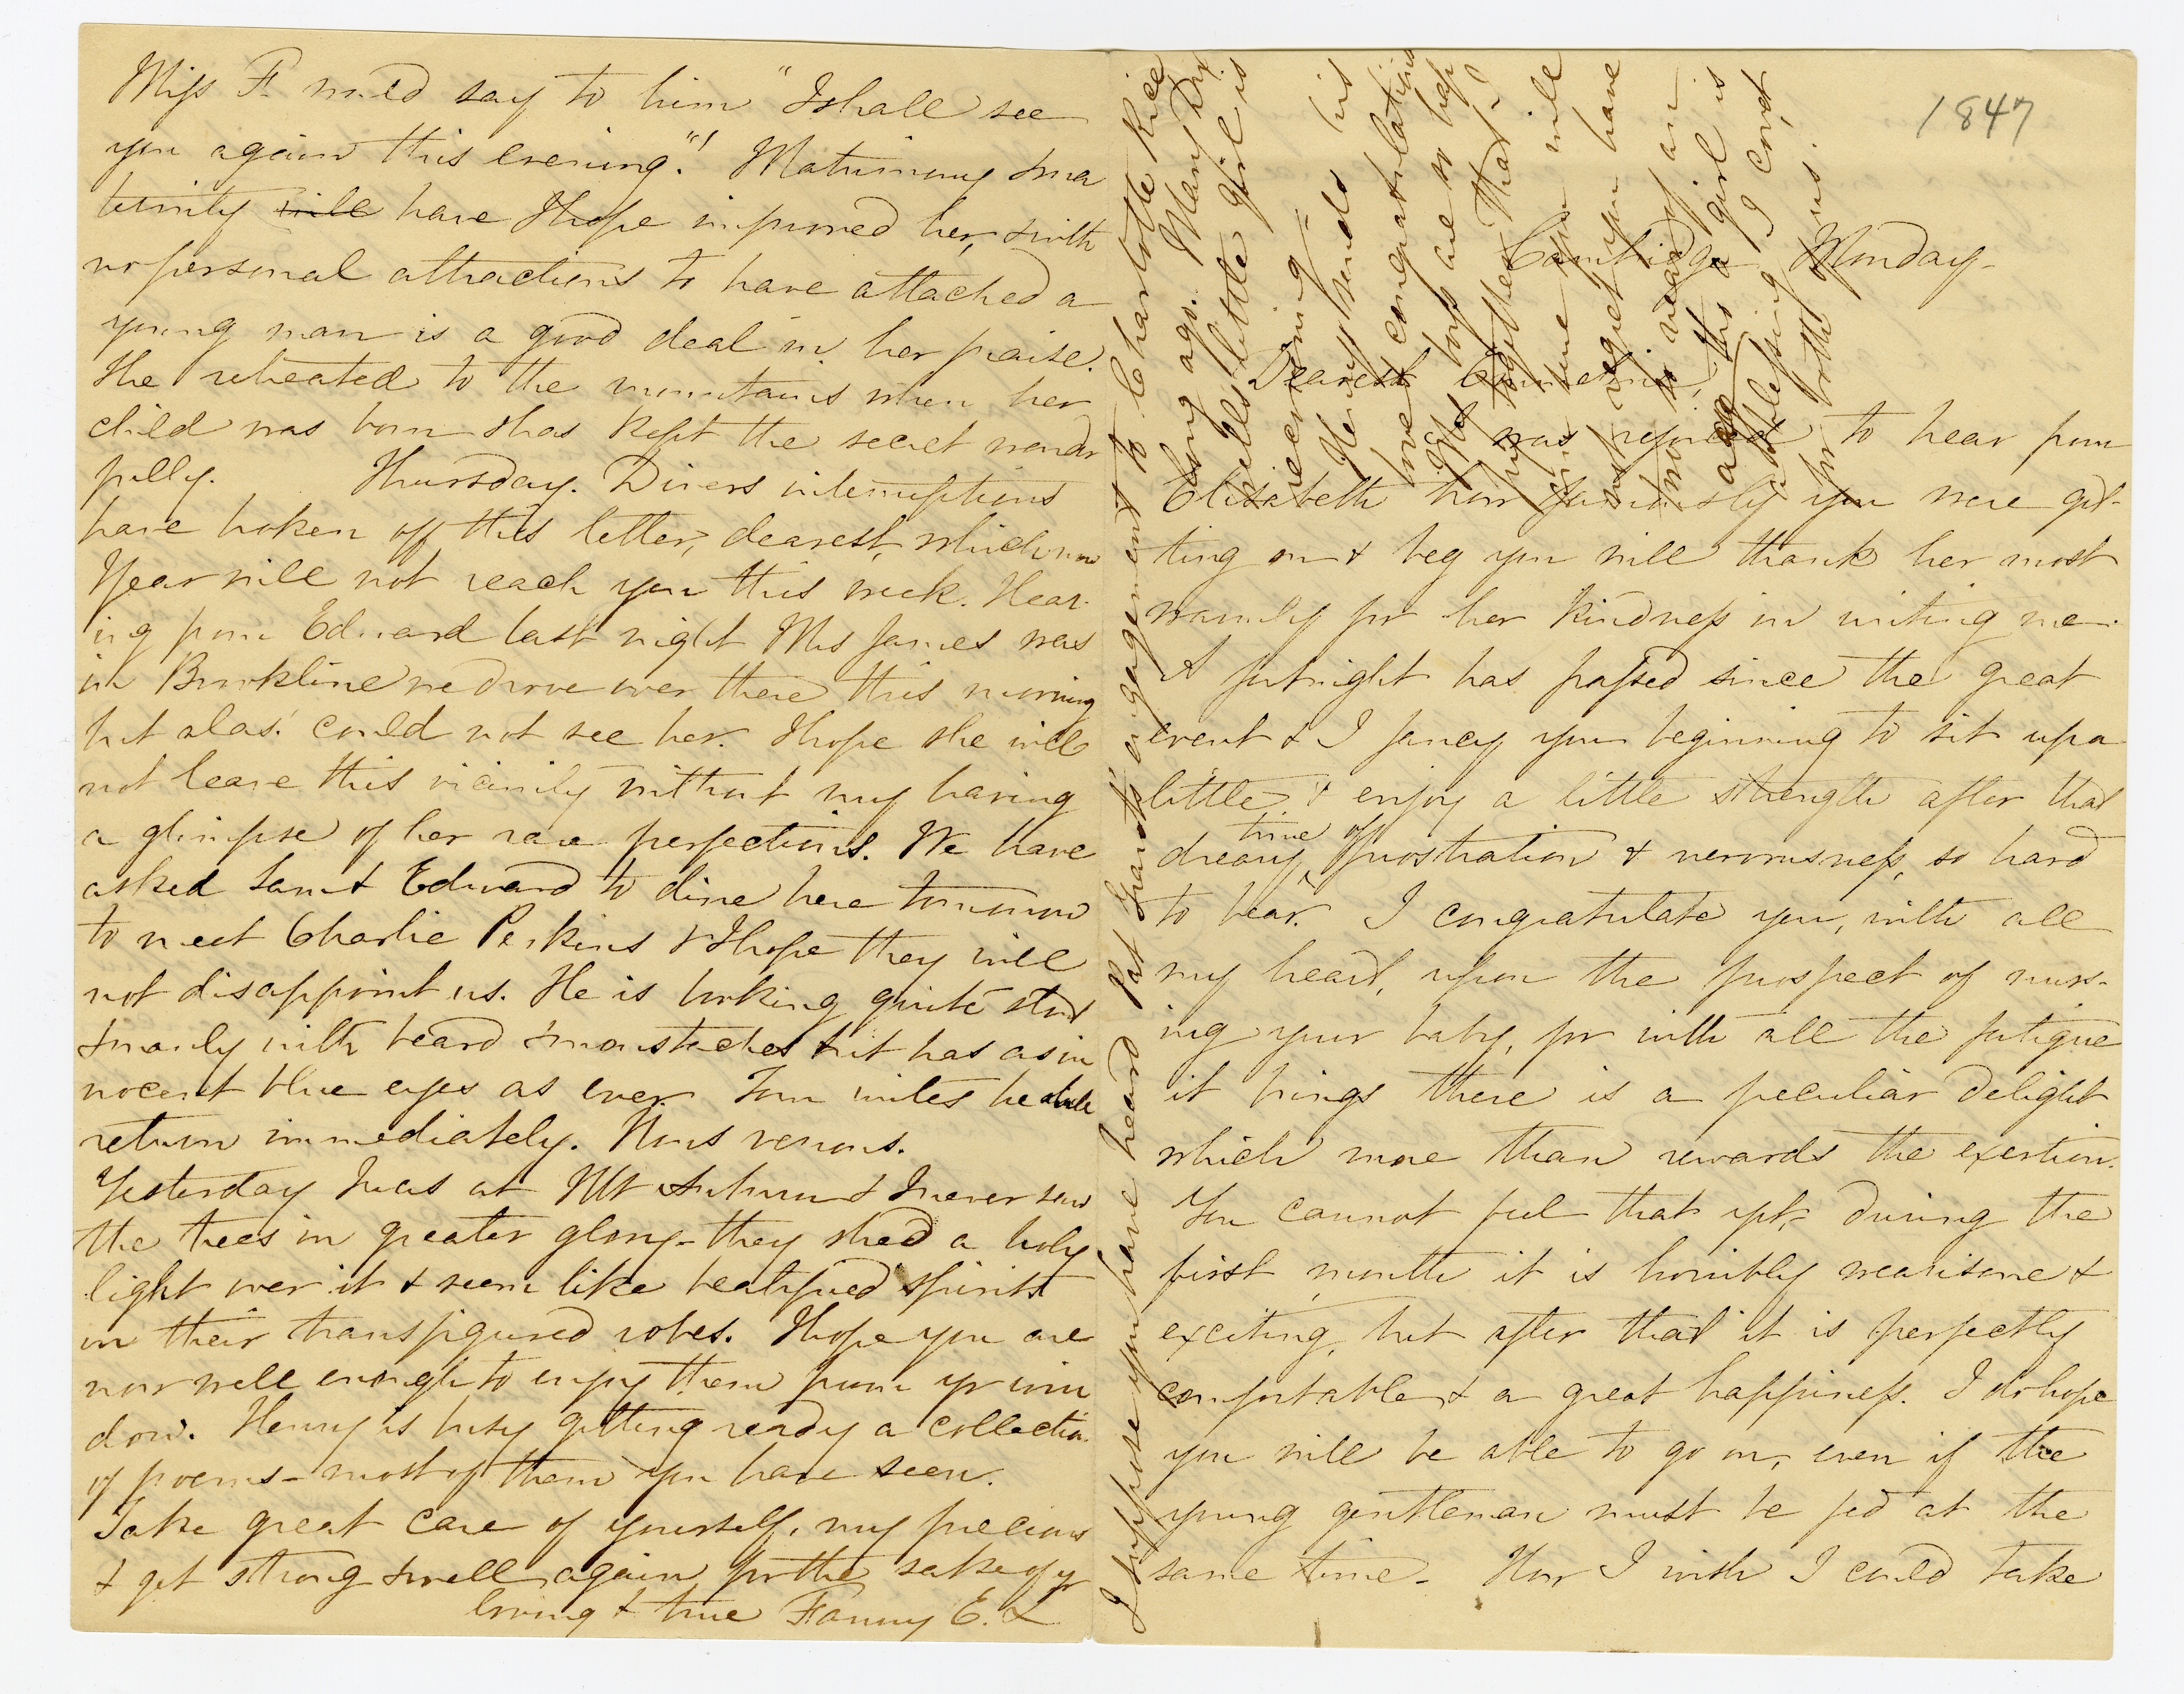 Miss F. would say to him "I shall see
you again this evening"! Matrimony & ma
ternity will have I hope improved her, & with
no personal attractions to have attached a
young man is a good deal in her praise.
She retreated to the mountains when her
child was born & has kept the secret wonder
fully. Thursday. Divers interruptions
have broken off this letter, dearest, which now
I fear will not reach you this week. Hear-
ing from Edward last night Mrs James was
in Brookline we drove over there this morning
but alas! could not see her. I hope she will
not leave this vicinity without my having
a glimpse of her rare perfections. We have
asked Sam & Edward to dine here tomorrow
to meet Charlie Perkins & I hope they will
not disappoint us. He is looking quite stout
& manly with beard & moustaches but has as in
nocent blue eyes as ever. Tom writes he shall
return immediately. Nous verrons.
Yesterday I was at Mt Auburn & I never saw
the trees in greater glory - they shed a holy
light over it & seem like beatified spirits
in their transfigured robes. I hope you are
now well enough to enjoy them from yr win
dow. Henry is busy getting ready a collection
of poems - most of them you have seen.
Take great care of yourself, my precious
& get strong & well again for the sake of yr
loving & true Fanny E. L
1847
Cambridge Monday-
Dearest
I was rejoiced to hear from
Elizabeth how famously you were get-
ting on & beg you will thank her most
warmly for her kindness in writing me.
A fortnight has passed since the great
event & I fancy you beginning to sit up a
little & enjoy a little strength after that
dreary time of prostration & nervousness, so hard
to bear. I congratulate you, with all
my heart, upon the prospect of nurs-
ing your baby, for with all the fatigue
it brings there is a peculiar delight
which more than rewards the exertion.
You cannot feel that yet, during the
first month it is horribly wearisome &
exciting, but after that it is perfectly
comfortable & a great happiness. I do hope
you will be able to go on, even if the
young gentleman must be fed at the
same time - How I wish I could take
I suppose you have heard Pat Grant's engagement to Charlotte Rice
long ago. Mary Dix
well's little girl is
very
Henry sends his
love & congratulations
The boys are so hap
py together. That
one time you will
not regret you have
two so near of an
age. This girl is
a blessing I covet
for both of us.